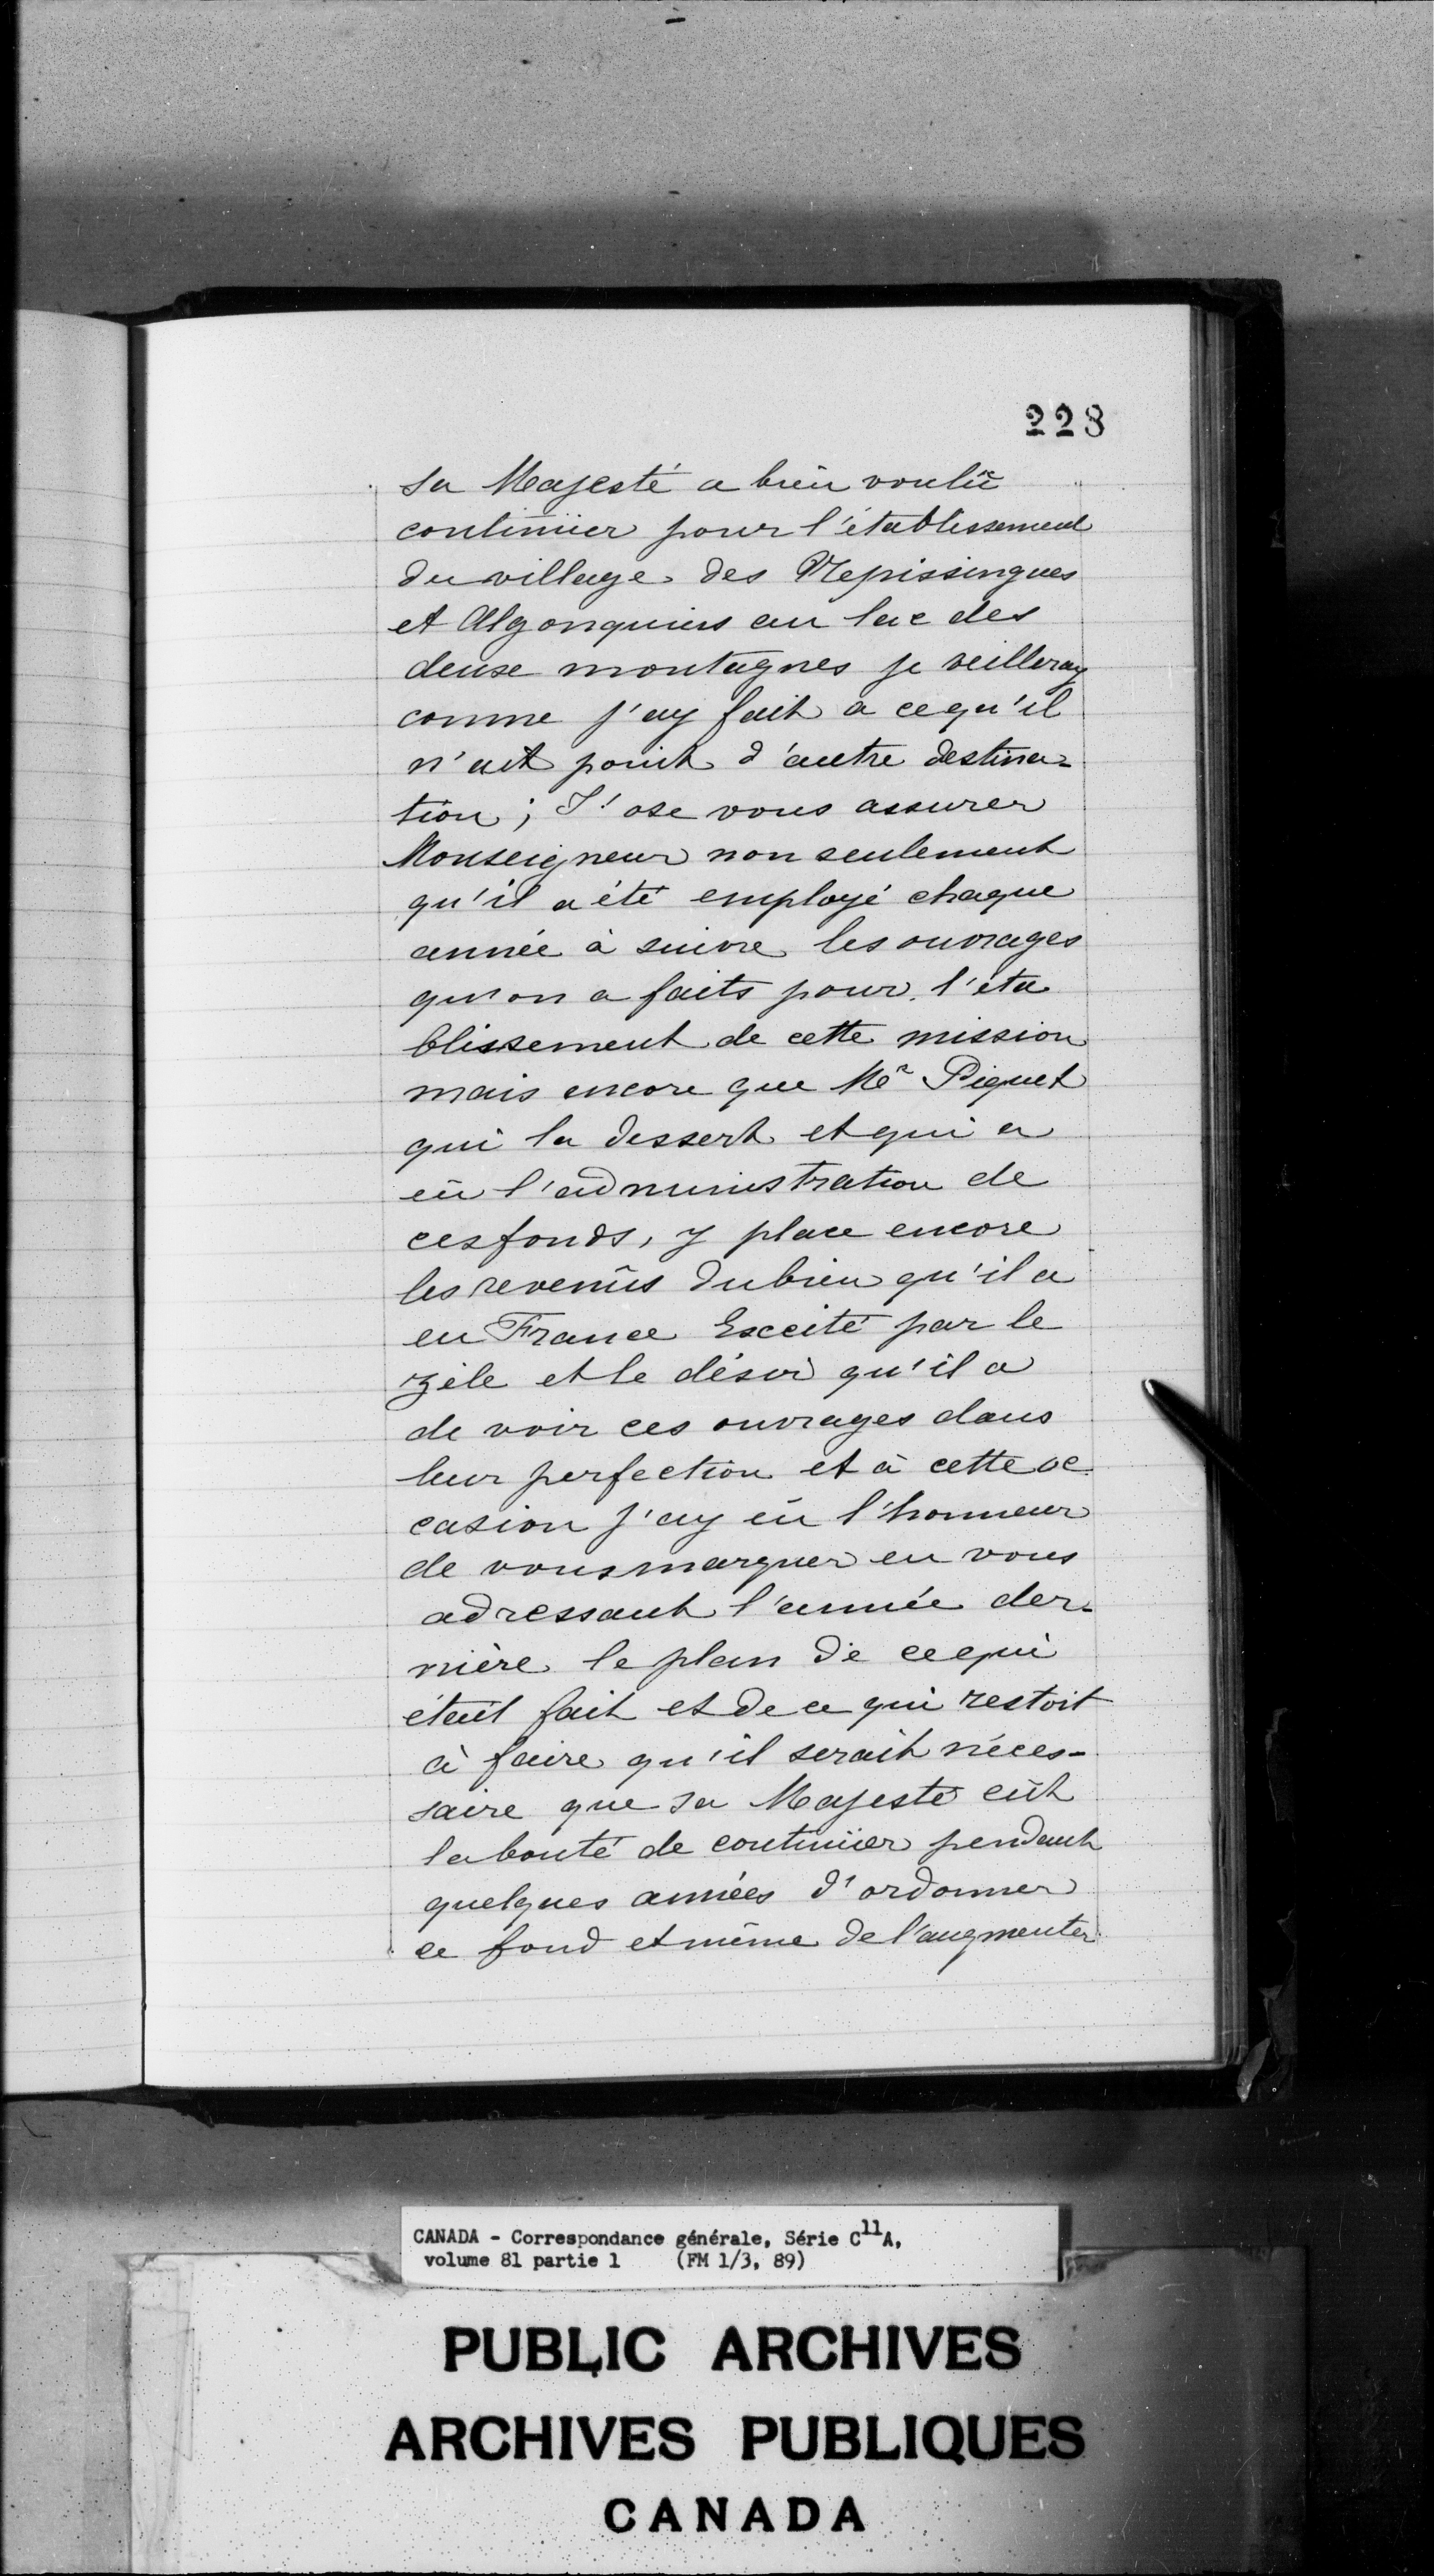 223
sa Majesté a bien voulû
continüer pour l'établissement
du village des Nepissingues
et Algonquins au lac des
deux montagnes je veilleray
comme j'ay fait a cequ'il
n'ait point d'autre destina-
tion; J'ose vous assurer
Monseigneur non seulement
qu'il a été employé chaque
année à suivre les ouvrages
qu'on a faits pour l'éta
blissement de cette mission
mais encore que Mr Piquet
qui la dessert et qui a
eü l'administration de
ces fonds, y place encore
les revenûs du bien qu'il a
en France Excité par le
zèle et le désir qu'il a
de voir ces ouvrages dans
leur perfection et à cette oc
casion j'ay eü l'honneur
de vous marquer en vous
adressant l'année der-
nière le plan de ce qui
étoit fait et de ce qui restoit
à faire qu'il serait néces-
saire que sa Majesté eût
la bonté de continüer pendant
quelques années d'ordonner
ce fond et même de l'augmenter
CANADA - Correspondance générale, Série C11A,
volume 81 partie 1 (FM 1/3, 89)
PUBLIC ARCHIVES
ARCHIVES PUBLIQUES
CANADA